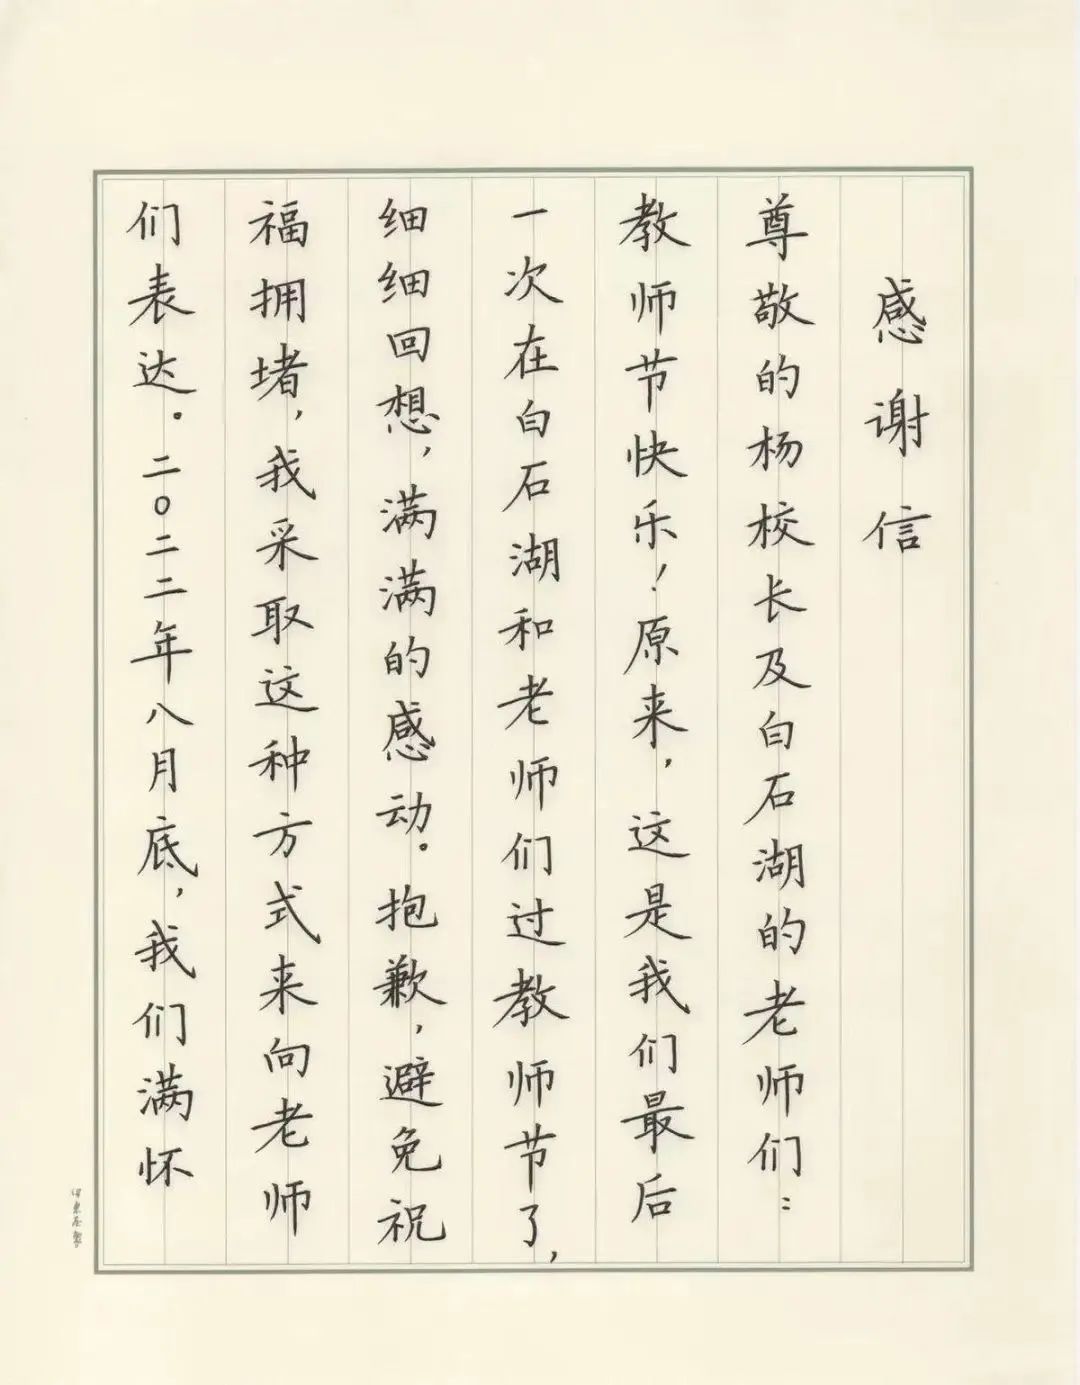 感谢信
尊敬的杨校长及白石湖的老师们：
教师节快乐！原来，这是我们最后
一次在白石湖和老师们过教师节了，
细细回想，满满的感动。抱歉，避免祝
福拥堵，我采取这种方式来向老师
们表达。二〇二二年八月底，我们满怀